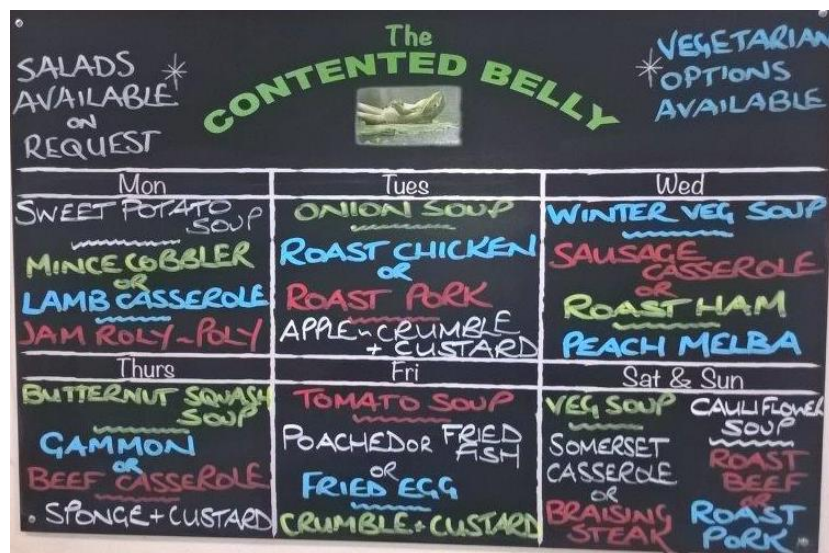 The
CONTENTED BELLY
SALADS
AVAILABLE
ON
REQUEST
VEGETARIAN
OPTIONS
AVAILABLE
Mon
SWEET POTATO
SOUP
MINCE COBBLER
OR
LAMB CASSEROLE
JAM ROLY-POLY
Tues
ONION SOUP
ROAST CHICKEN
OR
ROAST PORK
APPLE~CRUMBLE
+ CUSTARD
Wed
WINTER VEG SOUP
SAUSAGE
CASSEROLE
OR
ROAST HAM
PEACH MELBA
Thurs
BUTTERNUT SQUASH
SOUP
GAMMON
OR
BEEF CASSEROLE
SPONGE + CUSTARD
Fri
TOMATO SOUP
POACHED OR FRIED
FISH
OR
FRIED EGG
CRUMBLE + CUSTARD
Sat & Sun
VEG SOUP
SOMERSET
CASSEROLE
OR
BRAISING
STEAK
CAULIFLOWER
SOUP
ROAST
BEEF
OR
ROAST
PORK